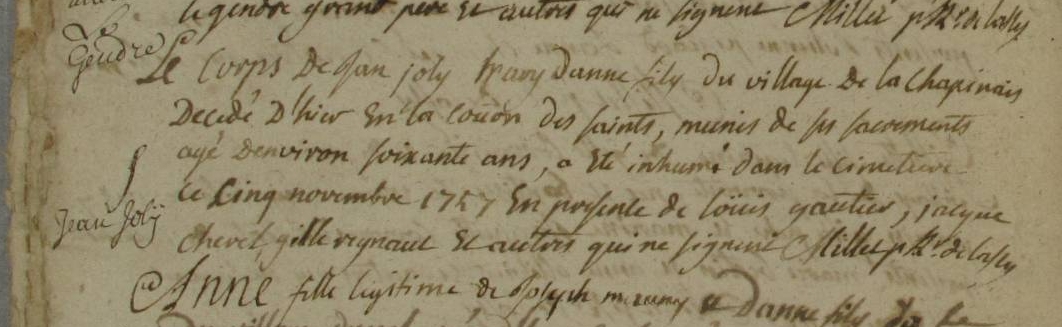 legendre grand pere Et autres qui ne signent Millet p. Rr. de lassy
Le
Gendre
Le Corps De Jan joly mary Danne fily du village de la Chapinais
Decedé D'hier En la de des saints, munis de ses sacrements
agé D'environ soixante ans, a Eté inhumé dans le cimetiere
ce Cinq novembre 1757 En presence de loüis gautier, jacque
Jean Joly
chevet, gille regnaut Et autres qui ne signent Millet p. Rr. de lassy
Anne fille legitime de Joseph et Danne fily du